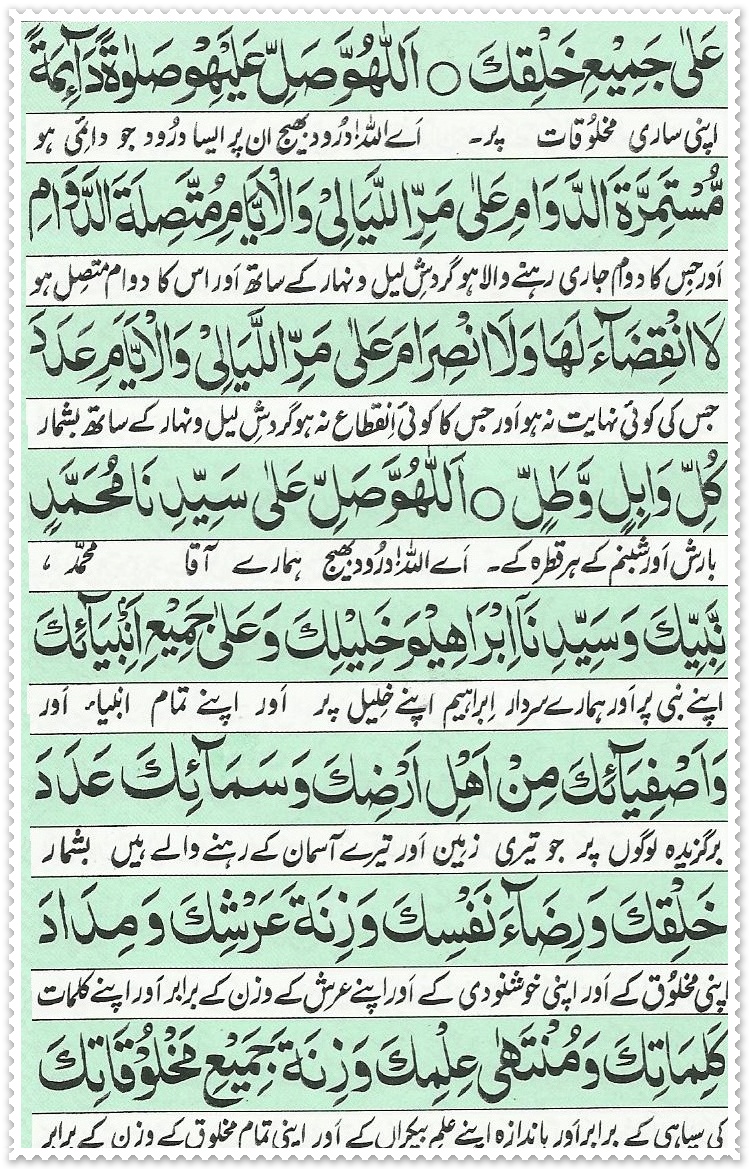 عَلٰى جَمِيْعِ خَلْقِكَ ○ اَللّٰهُمَّ صَلِّ عَلَيْهِمْ صَلٰوةً دَآئِمَةً
اپنی ساری مخلُوقات پر۔ اَے اللہ! درُود بھیج ان پر ایسا درُود جو دائمی ہو
مُّسْتَمِرَّةَ الدَّوَامِ عَلٰى مَرِّ اللَّيَالِىْ وَالْاَيَّامِ مُتَّصِلَةَ الدَّوَامِ
اَور جِس کا دوام جاری رہنے والا ہو گردشِ لیل و نہار کے ساتھ اَور اس کا دوام متصِل ہو
لَا انْقِضَآءَ لَهَا وَلَا انْصِرَامَ عَلٰى مَرِّ اللَّيَالِىْ وَالْاَيَّامِ عَدَدَ
جس کی کوئی نہایت نہ ہو اَور جس کا کوئی اِنقطاع نہ ہو گردشِ لیل و نہار کے ساتھ بشمار
كُلِّ وَابِلٍ وَّطَلٍّ ○ اَللّٰهُمَّ صَلِّ عَلٰى سَيِّدِنَا مُحَمَّدٍ
بارش اَور شبنم کے ہر قطرہ کے۔ اَے اللہ! درُود بھیج ہمارے آقا محمّد ،
نَّبِيِّكَ وَسَيِّدِنَآ اِبْرَاهِيْمَ خَلِيْلِكَ وَعَلٰى جَمِيْعِ اَنْبِيَآئِكَ
اپنے نبی پر اَور ہمارے سردار اِبراہیم اپنے خلیل پر اَور اپنے تمام انبیاء اَور
وَاَصْفِيَآئِكَ مِنْ اَهْلِ اَرْضِكَ وَسَمَآئِكَ عَدَدَ
برگزیدہ لوگوں پر جو تیری زمین اَور تیرے آسمان کے رہنے والے ہیں بشمار
خَلْقِكَ وَرِضَآءَ نَفْسِكَ وَزِنَةَ عَرْشِكَ وَمِدَادَ
اپنی مخلوُق کے اَور اپنی خوشنودی کے اَور اپنے عرش کے وزن کے برابر اَور اپنے کلمات
كَلِمَاتِكَ وَمُنْتَهٰى عِلْمِكَ وَزِنَةَ جَمِيْعِ مَخْلُوْقَاتِكَ
کی سیاہی کے برابر اَور باندازہ اپنے علمِ بیکراں کے اَور اپنی تمام مخلوق کے وزن کے برابر